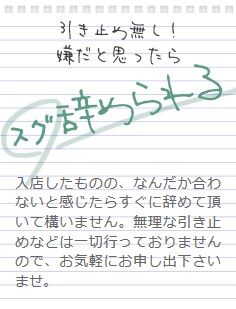 引き止め無し！
嫌だと思ったら
スグ辞められる
入店したものの、なんだか合わ
ないと感じたらすぐに辞めて頂
いて構いません。無理な引き止
めなどは一切行っておりません
ので、お気軽にお申し出下さい
ませ。